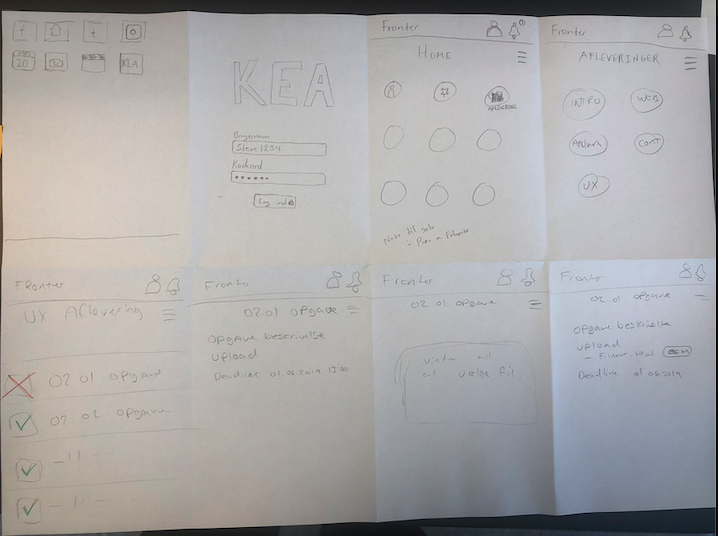 f
t
20
KEA
KEA
Brugernavn
Steve1234
Kodeord
Log ind
Fronter
HOME
AFLEVERING
Note til selv
Fronter
AFLEVERINGER
INTRO
WEB
CONT
UX
FRonter
UX Aflevering
02 01 opgave
02.02 opgave
- 11 -
- 11 -
Fronter
02.01 opgave
opgave beskrivelse
upload
Deadline 01.06.2019 13:00
Fronter
02.01 opgave
vælge fil.
Fronter
02.01 opgave
opgave beskrivelse
upload
Deadline 01.06.2019